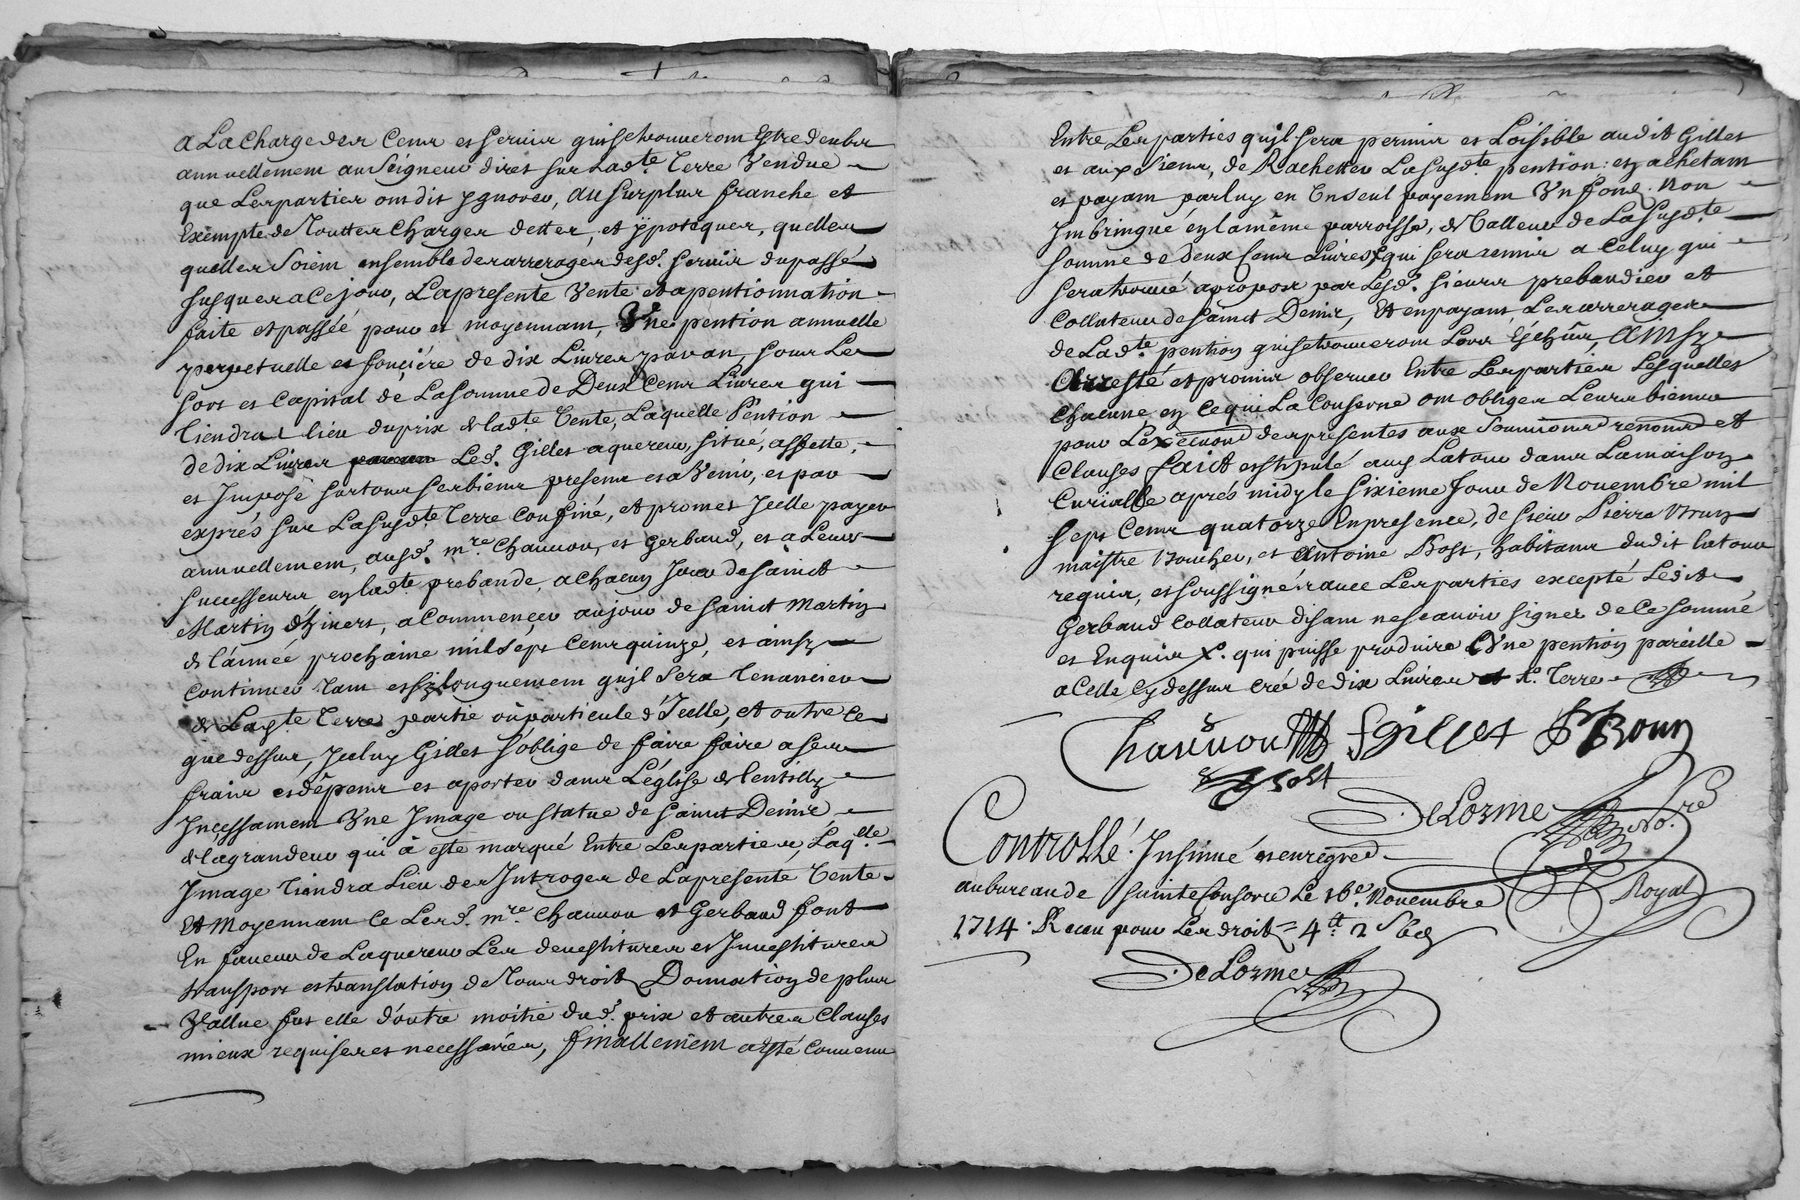 A La Charge des Cens et servis qui se trouveront Estre deubs
annuellement au Seigneur direct sur lad.te Terre Vendue
que Les parties ont dit ygnorer, au surplus franche et
Exempte de Touttes Charges dettes, et ypotecques, quelles
quelles soient ensemble des arrerages desd. servis du passé
jusques a ce jour, La presente Vente et apentionnation
faite et passéé pour et moyennant, Une pention annuelle
perpetuelle et fonciére de dix Livres par an, sous Le
sort et Capital de La somme de Deux Cens Livres qui
tiendra lieu du prix de lad.te Vente, Laquelle Pention
de dix Livres Led. Gilles aquereur, situé, assette,
et Jmposé sur tous ses biens presens et a Venir, et par
exprés sur La susd.te Terre Confiné, et promet Jcelle payer
annuellement, ausd. m.re Chauuon, et Gerbaud, et a Leurs
successeurs en lad.te prebande, a chacun Jour de sainct
Martin d'hiuert, a Commencer au jour de sainct Martin
de l'année prochaine mil sept cens quinze, et ainsy
Continuer tant et si longuement qu'jl sera Tenancier
de La sd.te Terre partie ou particule d'Jcelle, et outre ce
que dessus, Jceluy Gilles s'oblige de faire faire a ses
frais et dêpens et aporter dans L'églisse de lentilly
Jncessament Une Jmage ou statue de sainct Denis
de la grandeur qui a este marqué Entre Les parties, Laq.lle
Jmage tiendra Lieu des Jntroges de La presente Vente
Et Moyennant ce Lesd. m.re Chauuon et Gerbaud font
En faueur de L'aquereur Les deuestitures et Jnuestitures
transport et translation de Tous droits Donnation de plus
Vallue fut elle d'outre moitié dud. prix et autres Clauses
mieux requises et necessaires, finallement a esté conuenu
Entre Les parties qu'jl sera permis et Loisible audit Gilles
et aux siens, de Rachetter La susd.te pention en achetant
et payant par luy en Un seul payement Un fond Non
Jmbringué en la même parroisse, de Valleur de La susd.te
somme de deux Cens Livres x qui sera remis a Celuy qui
sera trouué apropos par Lesd. sieurs prebandier et
Collateur de sainct Denis, Et en payant Les arrerages
de Lad.te pention qui se trouueront Lors Echûs Ainsy
Arresté et promis obseruer Entre Les parties Lesquelles
chacune en ce qui La Conserne ont obligés Leurs biens
pour L'execution des presentes aux soumions renons et
Clauses Faict et stipulé aud Latour dans La maison
Curialle aprés midy le sixieme Jour de Nouembre mil
sept Cens quatorze En presence, de sieur Pierre Brun
maistre Boucher, et Antoine Bost, habitans dudit latour
requis, et soussignés auec Les parties excepté Ledit
Gerbaud Collateur disant ne scauoir signer de ce sommé
et Enquis x. qui puisse produire Une pention pareille
a Celle Cy dessus créé de dix Liures
Chauuon F Gilles P Brun
A Bost
DeLorme No.re
Royal
Controllé. Jnsinué et enregred
au bureau de sainte Consorce Le 16.e Nouembre
1714. Receu pour Les droits = 4.tt 2 s 6 d
DeLorme